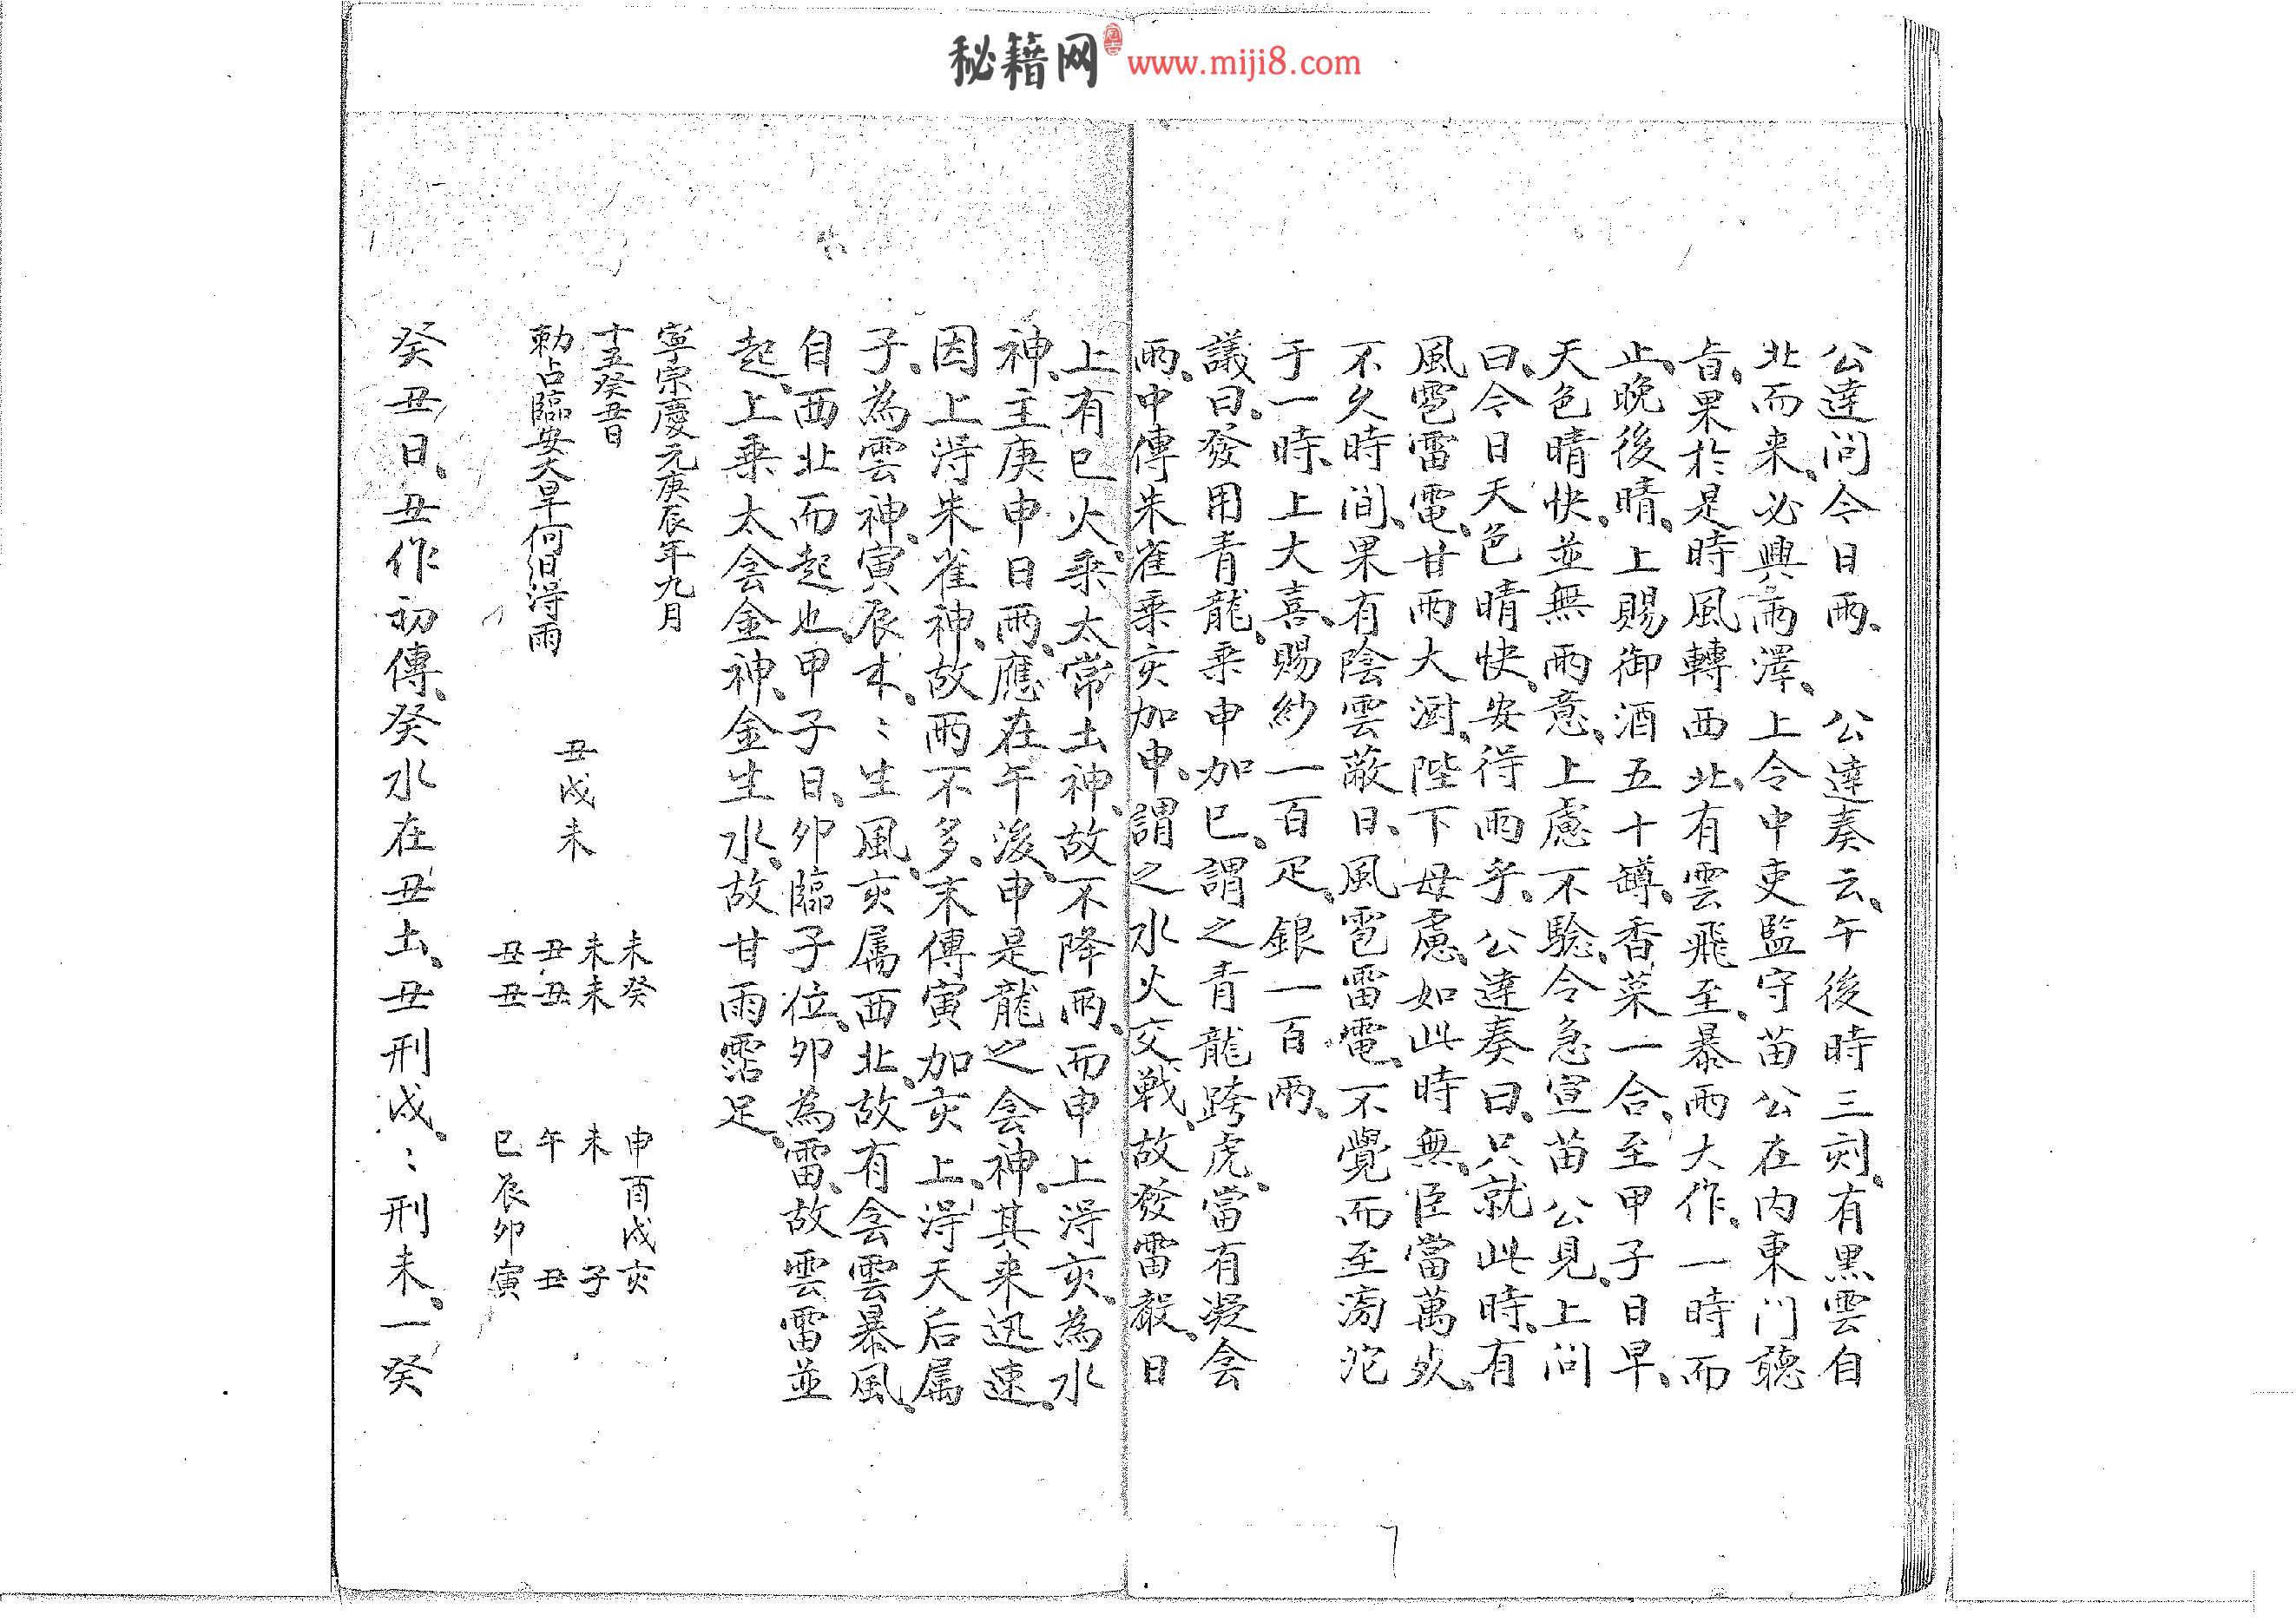 秘籍网 www.miji8.com
公達问今日雨、公達奏云、午後時三刻、有黑雲自
北而来、必興雨澤、上令中吏監守苗公在内東门聽
旨、果於是時風轉西北、有雲飛至、暴雨大作、一時而
止、晚後晴、上賜御酒五十罇、香菜一合、至甲子日早、
天色晴快、並無雨意、上慮不驗、令急宣苗公見、上问
曰、今日天色晴快、安得雨乎、公達奏曰、只就此時、有
風雹雷電、甘雨大澍、陛下毋慮、如此時無、臣當萬死、
不久時间、果有陰雲蔽日、風雹雷電、不覺而至滂沱
于一時、上大喜、賜紗一百疋、銀一百兩、
議曰、發用青龍、乘申加巳、謂之青龍跨虎、當有凝侌
雨、中傳朱雀乘亥加申、謂之水火交戰、故發雷𪔂、日
上有巳火、乘太常土神、故不降雨、而申上淂亥、為水
神、主庚申日雨、應在午後、申是龍之侌神、其来迅速、
因上淂朱雀神、故雨不多、末傳寅加亥上、淂天后属
子、為雲神、寅辰木、〻生風、亥属西北、故有侌雲暴風、
自西北而起也、甲子日、卯臨子位、卯為雷、故雲雷並
起、上乘太侌金神、金生水、故甘雨霑足、
寧宗慶元庚辰年九月
十五癸丑日
勅占臨安大旱何日淂雨
丑戌未
未未丑丑
癸未丑丑
申酉戌亥
未 子
午 丑
巳辰卯寅
癸丑日、丑作初傳、癸水在丑土、丑刑戌、〻刑未、一癸